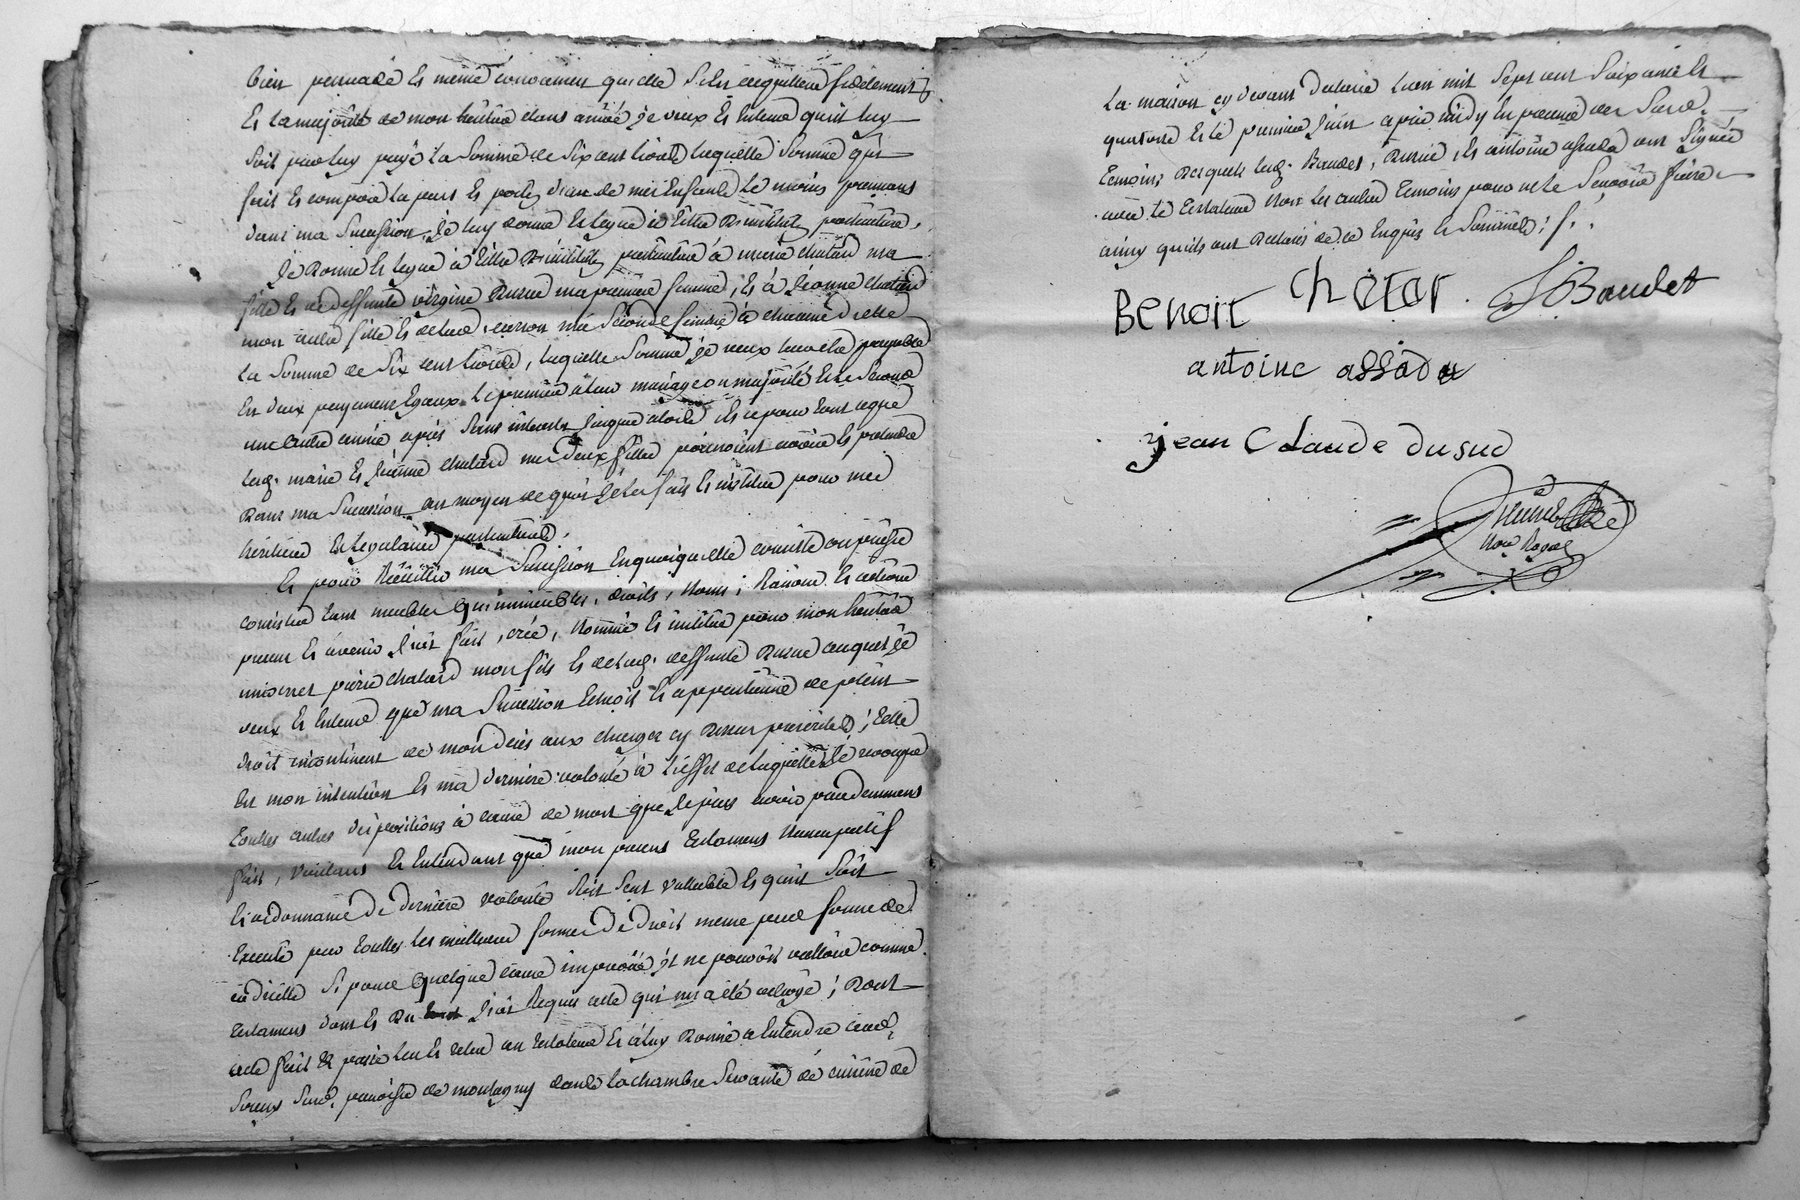 bien persuadé Et meme convaincu quelle S'En acquittera fidelement
Et la majorité de mon heritier étant arrivé je veux Et Entend qu'il luy
Soit par luy payé la Somme de Six cent livres laquelle Somme qui
fait Et compose la part Et portion d'un de mes Enfants le moins prennant
dans ma Succession, je luy donne Et legue à titre D'institution particuliere,
Je Donne Et legue à titre D'institution particuliere à marie chatard ma
fille Et de deffunte virgine Dusud ma premiere femme, Et à jeanne chatard
mon autre fille Et de ma Seconde femme à chacune d'elle
la Somme de Six cent livres, laquelle Somme je veux leur etre payable
En deux payements Egaux le premier à leur mariage ou majorité Et le Second
une autre année après Sans interets jusqu'alors Et ce pour tout ce que
lesd. marie Et jeanne chatard mes deux filles pourroient avoir Et pretendre
Dans ma Succession au moyen de quoi je les fais Et institue pour mes
héritieres Et legataires particulieres.
Et pour Recueillir ma Succession En quoi quelle consiste ou puisse
consister tant meubles qu'immeubles, droits, Noms, Raisons Et actions
present Et àvenir j'ait fait, créé, Nommé Et institué pour mon heritier
universel pierre chatard mon fils Et de lad. deffunte Dusud auquel je
veux Et Entend que ma Succession Echoit Et appartienne de plein
droit incontinent de mon deces aux charges cy Dessus prescrites; telle
Est mon intention Et ma derniere volonté à l'effet de laquelle je revoque
touttes autres dispositions à cause de mort que je puis avoir precedemment
fait, voulant Et Entendant que mon present testament Nuncupatif
Et ordonnance De derniere volonté Soit Seul vallable Et qu'il Soit
Executé par touttes les meilleures formes De droit meme par forme de
codicille Si pour quelque cause imprevue il ne pouvoit valloir comme
testament dont Et Du j'ait Requis acte qui m'a eté octroyé; Dont
acte fait Et passé leu Et releu au testateur Et à luy Donné a Entendre aud.
paroisse de montagny dans la chambre Servante de cuisine de
la maison cy devant declarée l'an mil Sept cent Soixante Et
quatorze Et le premier juin après midy En presence des Susd.
temoins Desquels led. Baudet, Dusud, Et antoine assada ont Signé
avec le testateur Non les autres temoins pour ne le Sçavoir faire
ainsy qu'ils ont Declarés de ce Enquis Et Sommés; /. .
Benoit Chatar. Baudet
antoine assada
jean Claude dusud
Nore Royal